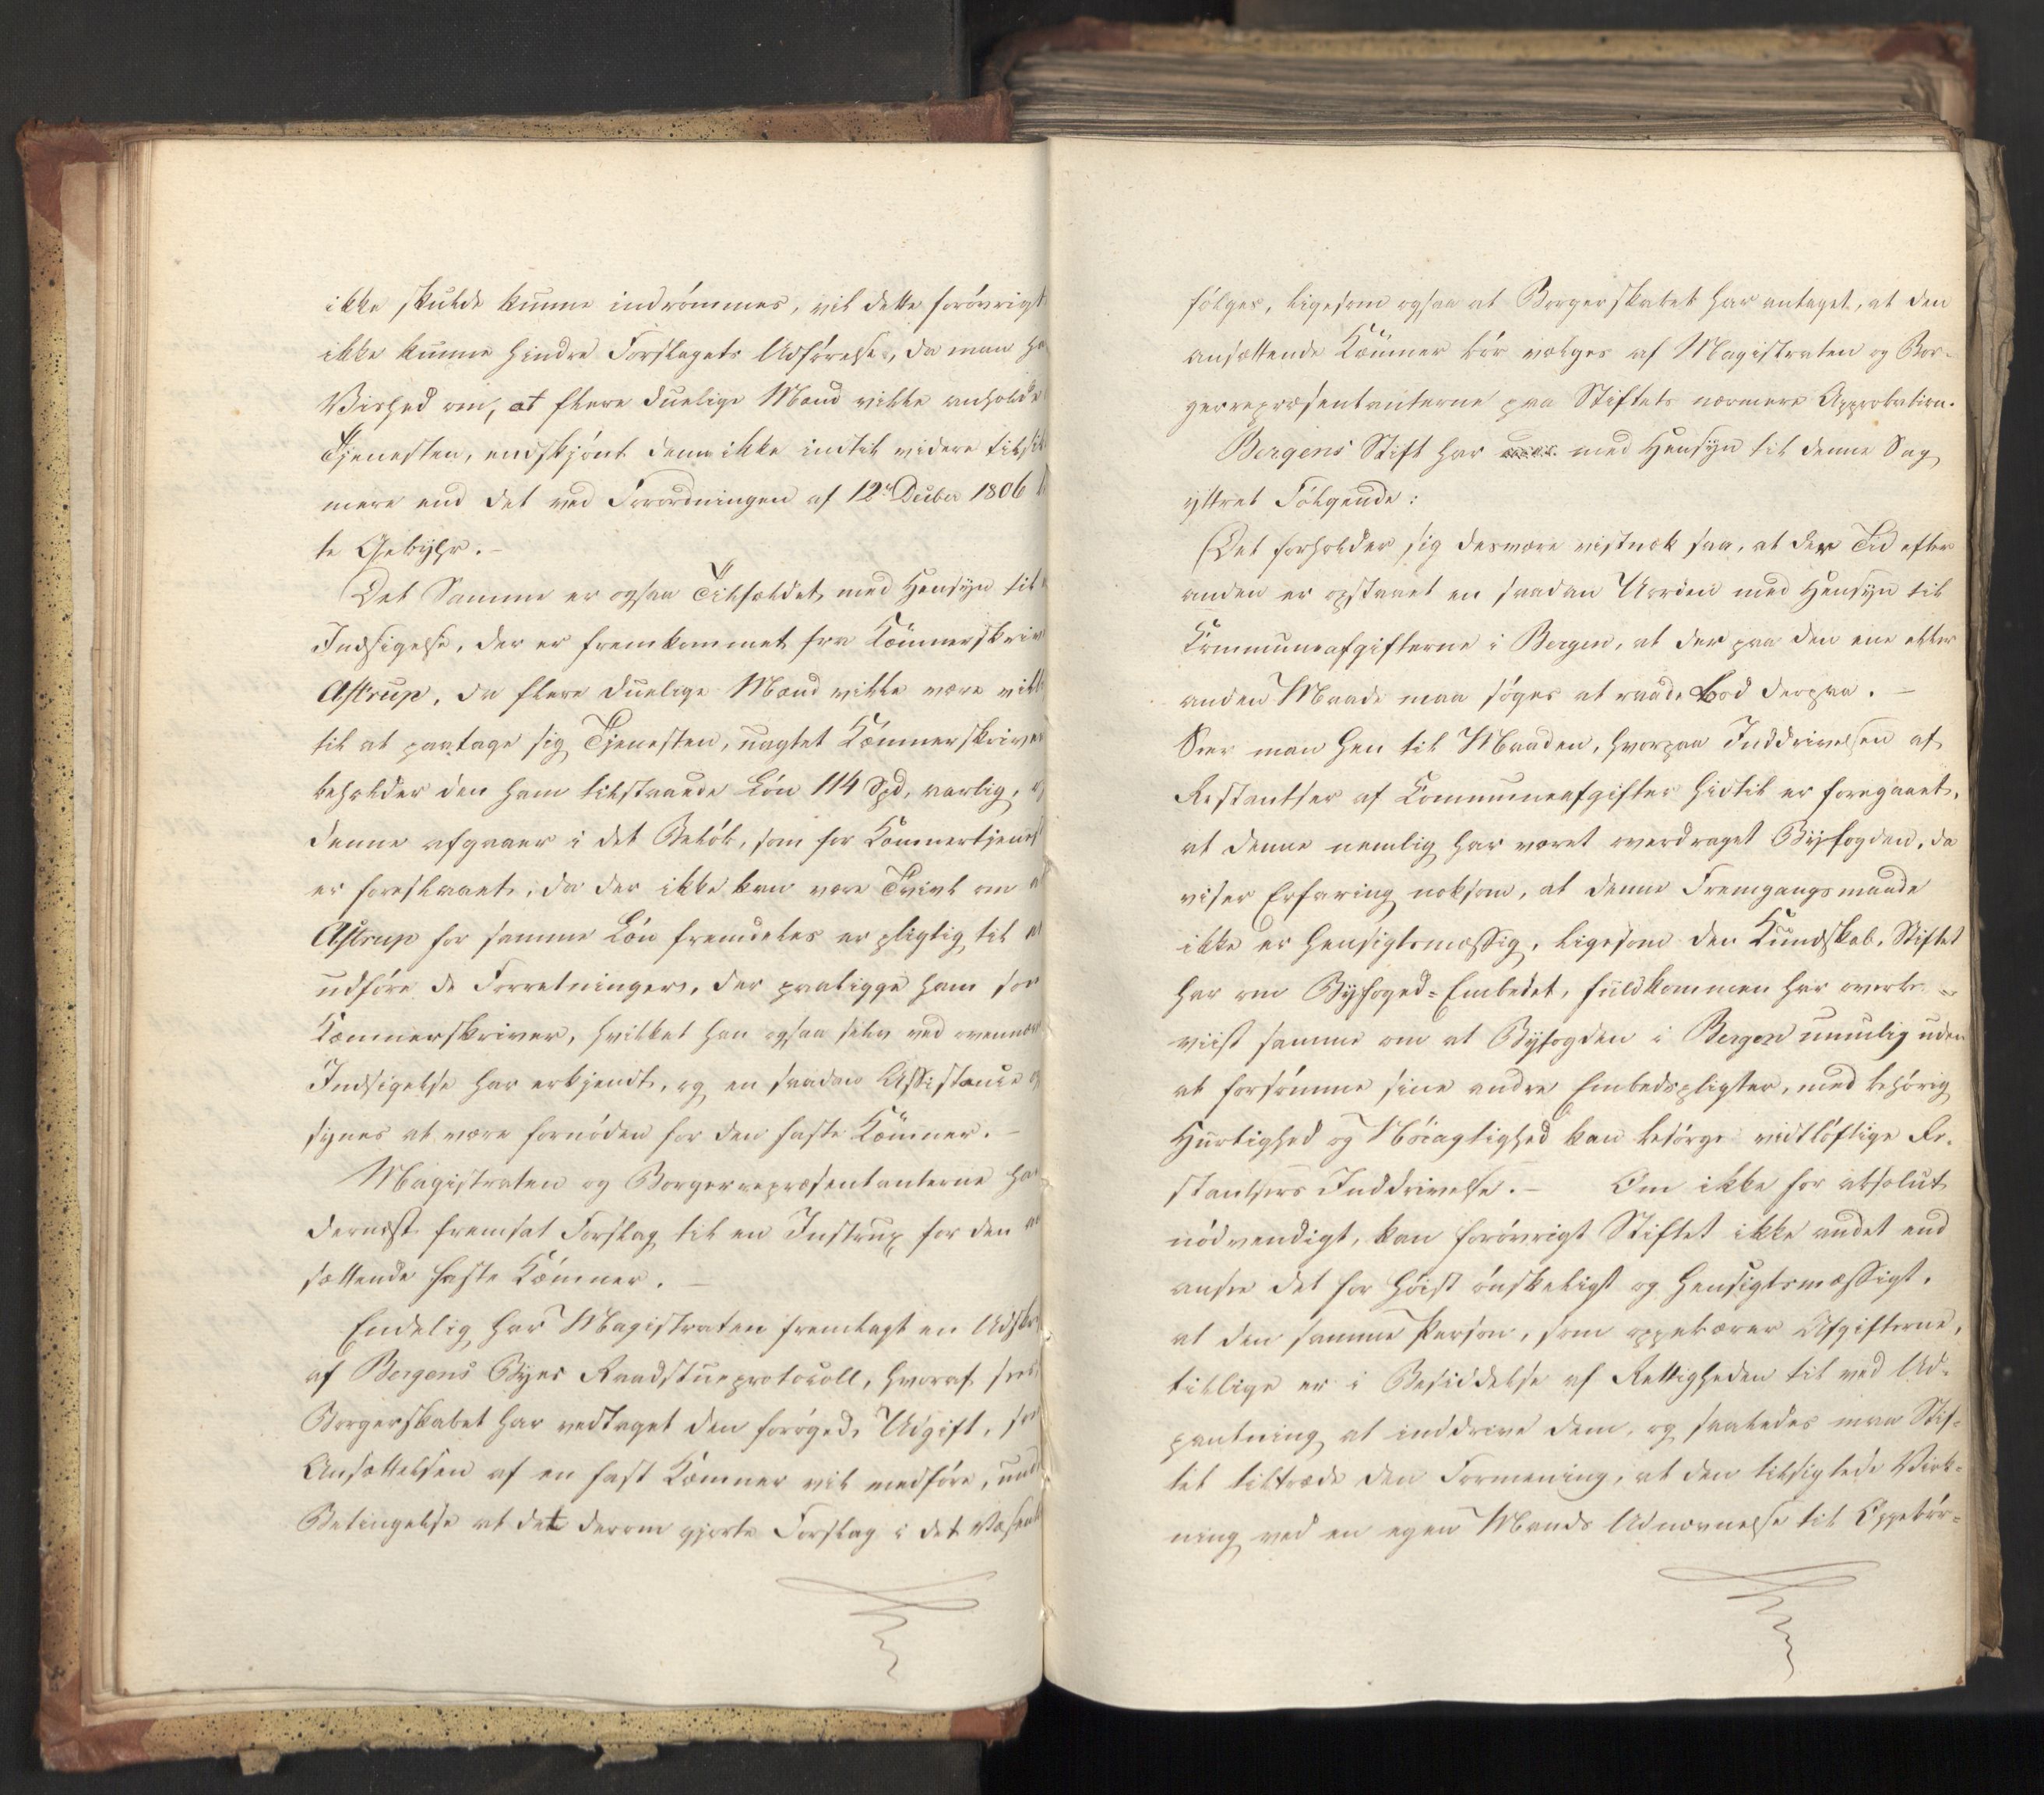 ikke skulde kunne indrømmes, vil dette forøvrigt
ikke kunne hindre Forslagets Udførelse, da man ha
Vished om, at flere duelige Mænd ville anholde
Tjenesten, endskjønt denn ikke indtil videre
mere end det ved Forordningen af 12te Decbr 1806
te Gebyhr. –
Det Samme er ogsaa Tilfældet, med Hensyn til
Indsigelse, der er fremkommet fra Kæmnerskriv
Astrup, da flere duelige Mænd ville være vill
til at paatage sig Tjenesten, uagtet Kæmnerskriver
beholder den ham tilstaaede Løn 114 Spd, aarlig, og
denne afgaaer i det Beløb, som for Kæmnertjenes
er foreslaaet, da der ikke kan være Tvivl om a
Astrup for samme Løn fremdeles er pligtig til at
udføre de Forretninger, der paaligge ham som
Kæmnerskriver, hvilket han ogsaa selv ved ovennæv
Indsigelse har erkjendt, og en saadan Assistance og
synes at være fornøden for den faste Kæmner. –
Magistraten og Borgerrepræsentanterne ha
dernæst fremsat Forslag til en Instrux for den an
sættende faste Kæmner. –
Endelig har Magistraten fremlagt en Udskr
af Bergens Byes Raadstueprotocoll, hvoraf sees,
Borgerskabet har vedtaget den forøgede Udgift, som
Ansættelsen af en fast Kæmner vil medføre, unde
Betingelse at det derom gjorte Forslag i det Væsent
følges, ligesom ogsaa at Borgerskabet har antaget, at den
ansættende Kæmner bør vælges af Magistraten og Bor-
gerrepræsentanterne paa Stiftets nærmere Approbation.
Bergens Stift har med Hensyn til denne Sag
yttret Følgende:
Det forholder sig desværre vistnok saa, at der Tid efter
anden er opstaaet en saadan Uorden med Hensyn til
Communeafgifterne i Bergen, at der paa den ene eller
anden Maade maa søges at raade Bod derpaa. –
Seer man hen til Maaden, hvorpaa Inddrivelsen af
Restantser af Communeafgifter hidtil er foregaaet,
at denne nemlig har været overdraget Byfogden, da
viser Erfaring noksom, at denne Fremgangsmaade
ikke er hensigtsmæssig, ligesom den Kundskab, Stiftet
har om Byfoged-Embedet, fuldkommen har overbe-
viist samme om at Byfogden i Bergen umulig uden
at forsømme sine andre Embedspligter, med behørig
Hurtighed og Nöiagtighed kan besørge vidtløftige Re-
stantsers Inddrivelse. – Om ikke for absolut
nödvendigt, kan forøvrigt Stiftet ikke andet end
ansee det for høist ønskeligt og hensigtsmæssigt,
at den samme Person, som oppebærer Afgifterne,
tillige er i Besiddelse af Rettigheden til ved Ud-
pantning at inddrive dem, og saaledes maa Stif-
tet tiltræde den Formening, at den tilsigtede Virk-
ning ved en egen Mands Udnævnelse til Oppebör-